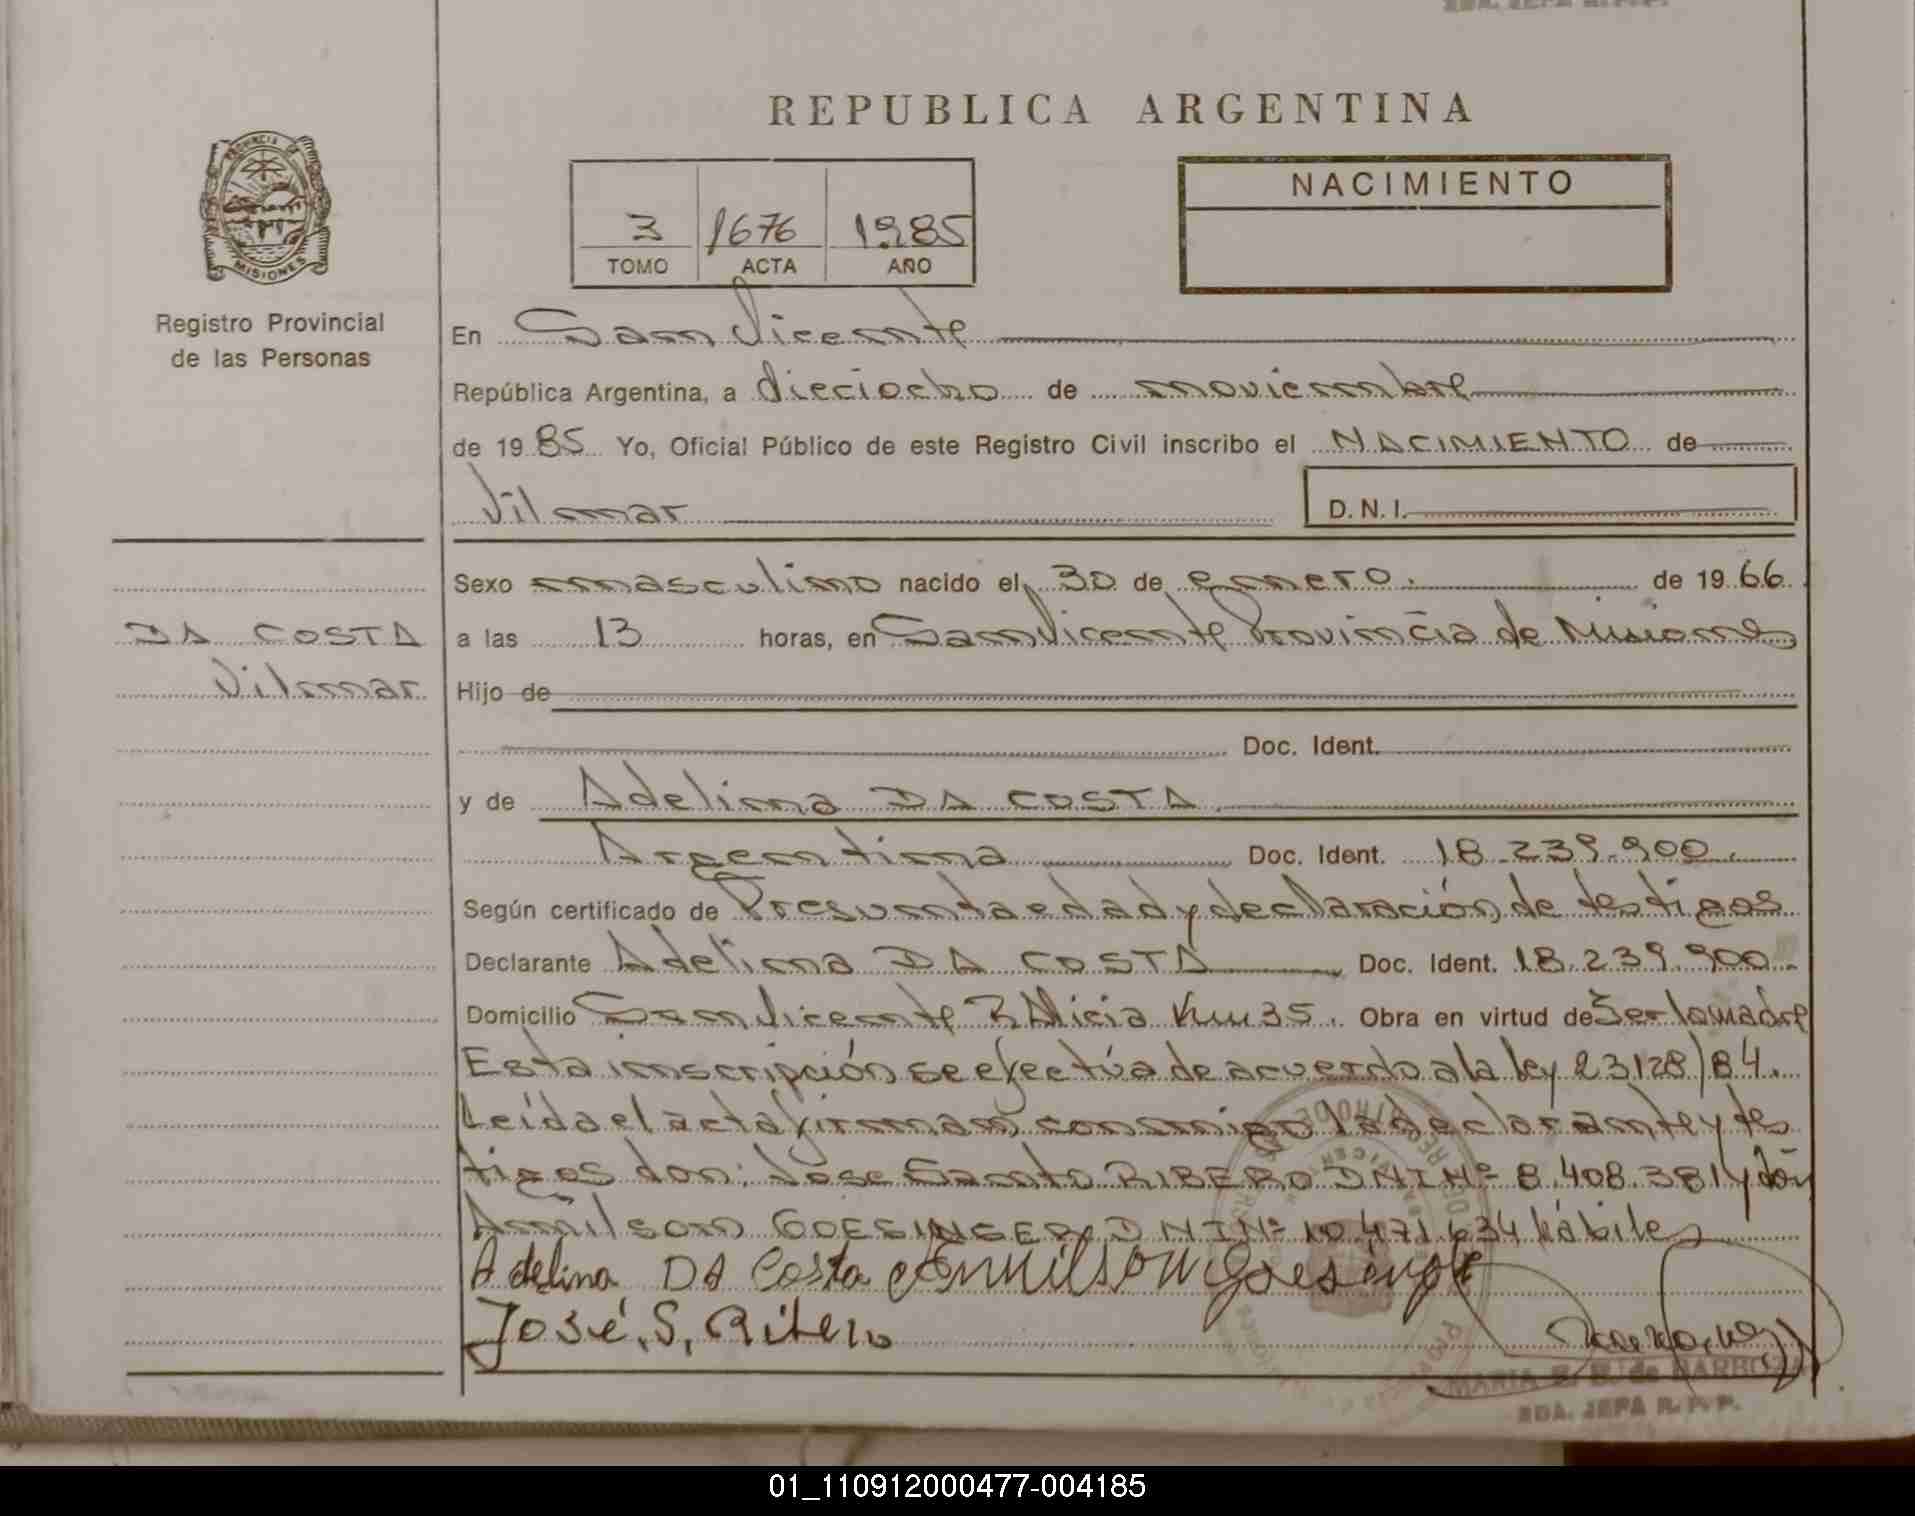 REPUBLICA ARGENTINA
PROVINCIA DE
MISIONES
Registro Provincial
de las Personas
3 1676 1985
TOMO ACTA AÑO
NACIMIENTO
En San Vicente
República Argentina, a dieciocho de noviembre
de 19 85 Yo, Oficial Público de este Registro Civil inscribo el NACIMIENTO de
Vilmar D.N.I.
Sexo masculino nacido el 30 de enero. de 19 66.
DA COSTA
Vilmar
a las 13 horas, en San Vicente Provincia de Misiones
Hijo de
Doc. Ident.
y de Adelina DA COSTA
Argentina Doc. Ident. 18.239.900.
Según certificado de Presunta edad y declaración de testigos
Declarante Adelina DA COSTA Doc. Ident. 18.239.900.
Domicilio San Vicente P. Alicia Km 35. Obra en virtud de Ser la madre
Esta inscripción se efectúa de acuerdo a la ley 23128/84.
Leída el acta firman conmigo la declarante y tes
tigos don: Jose Santo RIBERO DNI Nº 8.408.381 y don
Annilson GOESINGER DNI Nº 10.471.634 hábiles
Adelina DA Costa Annilson Goesinger
José, S, Ribero
MARIA E. B. de BARBOZA
2DA. JEFA R.P.P.
01_110912000477-004185